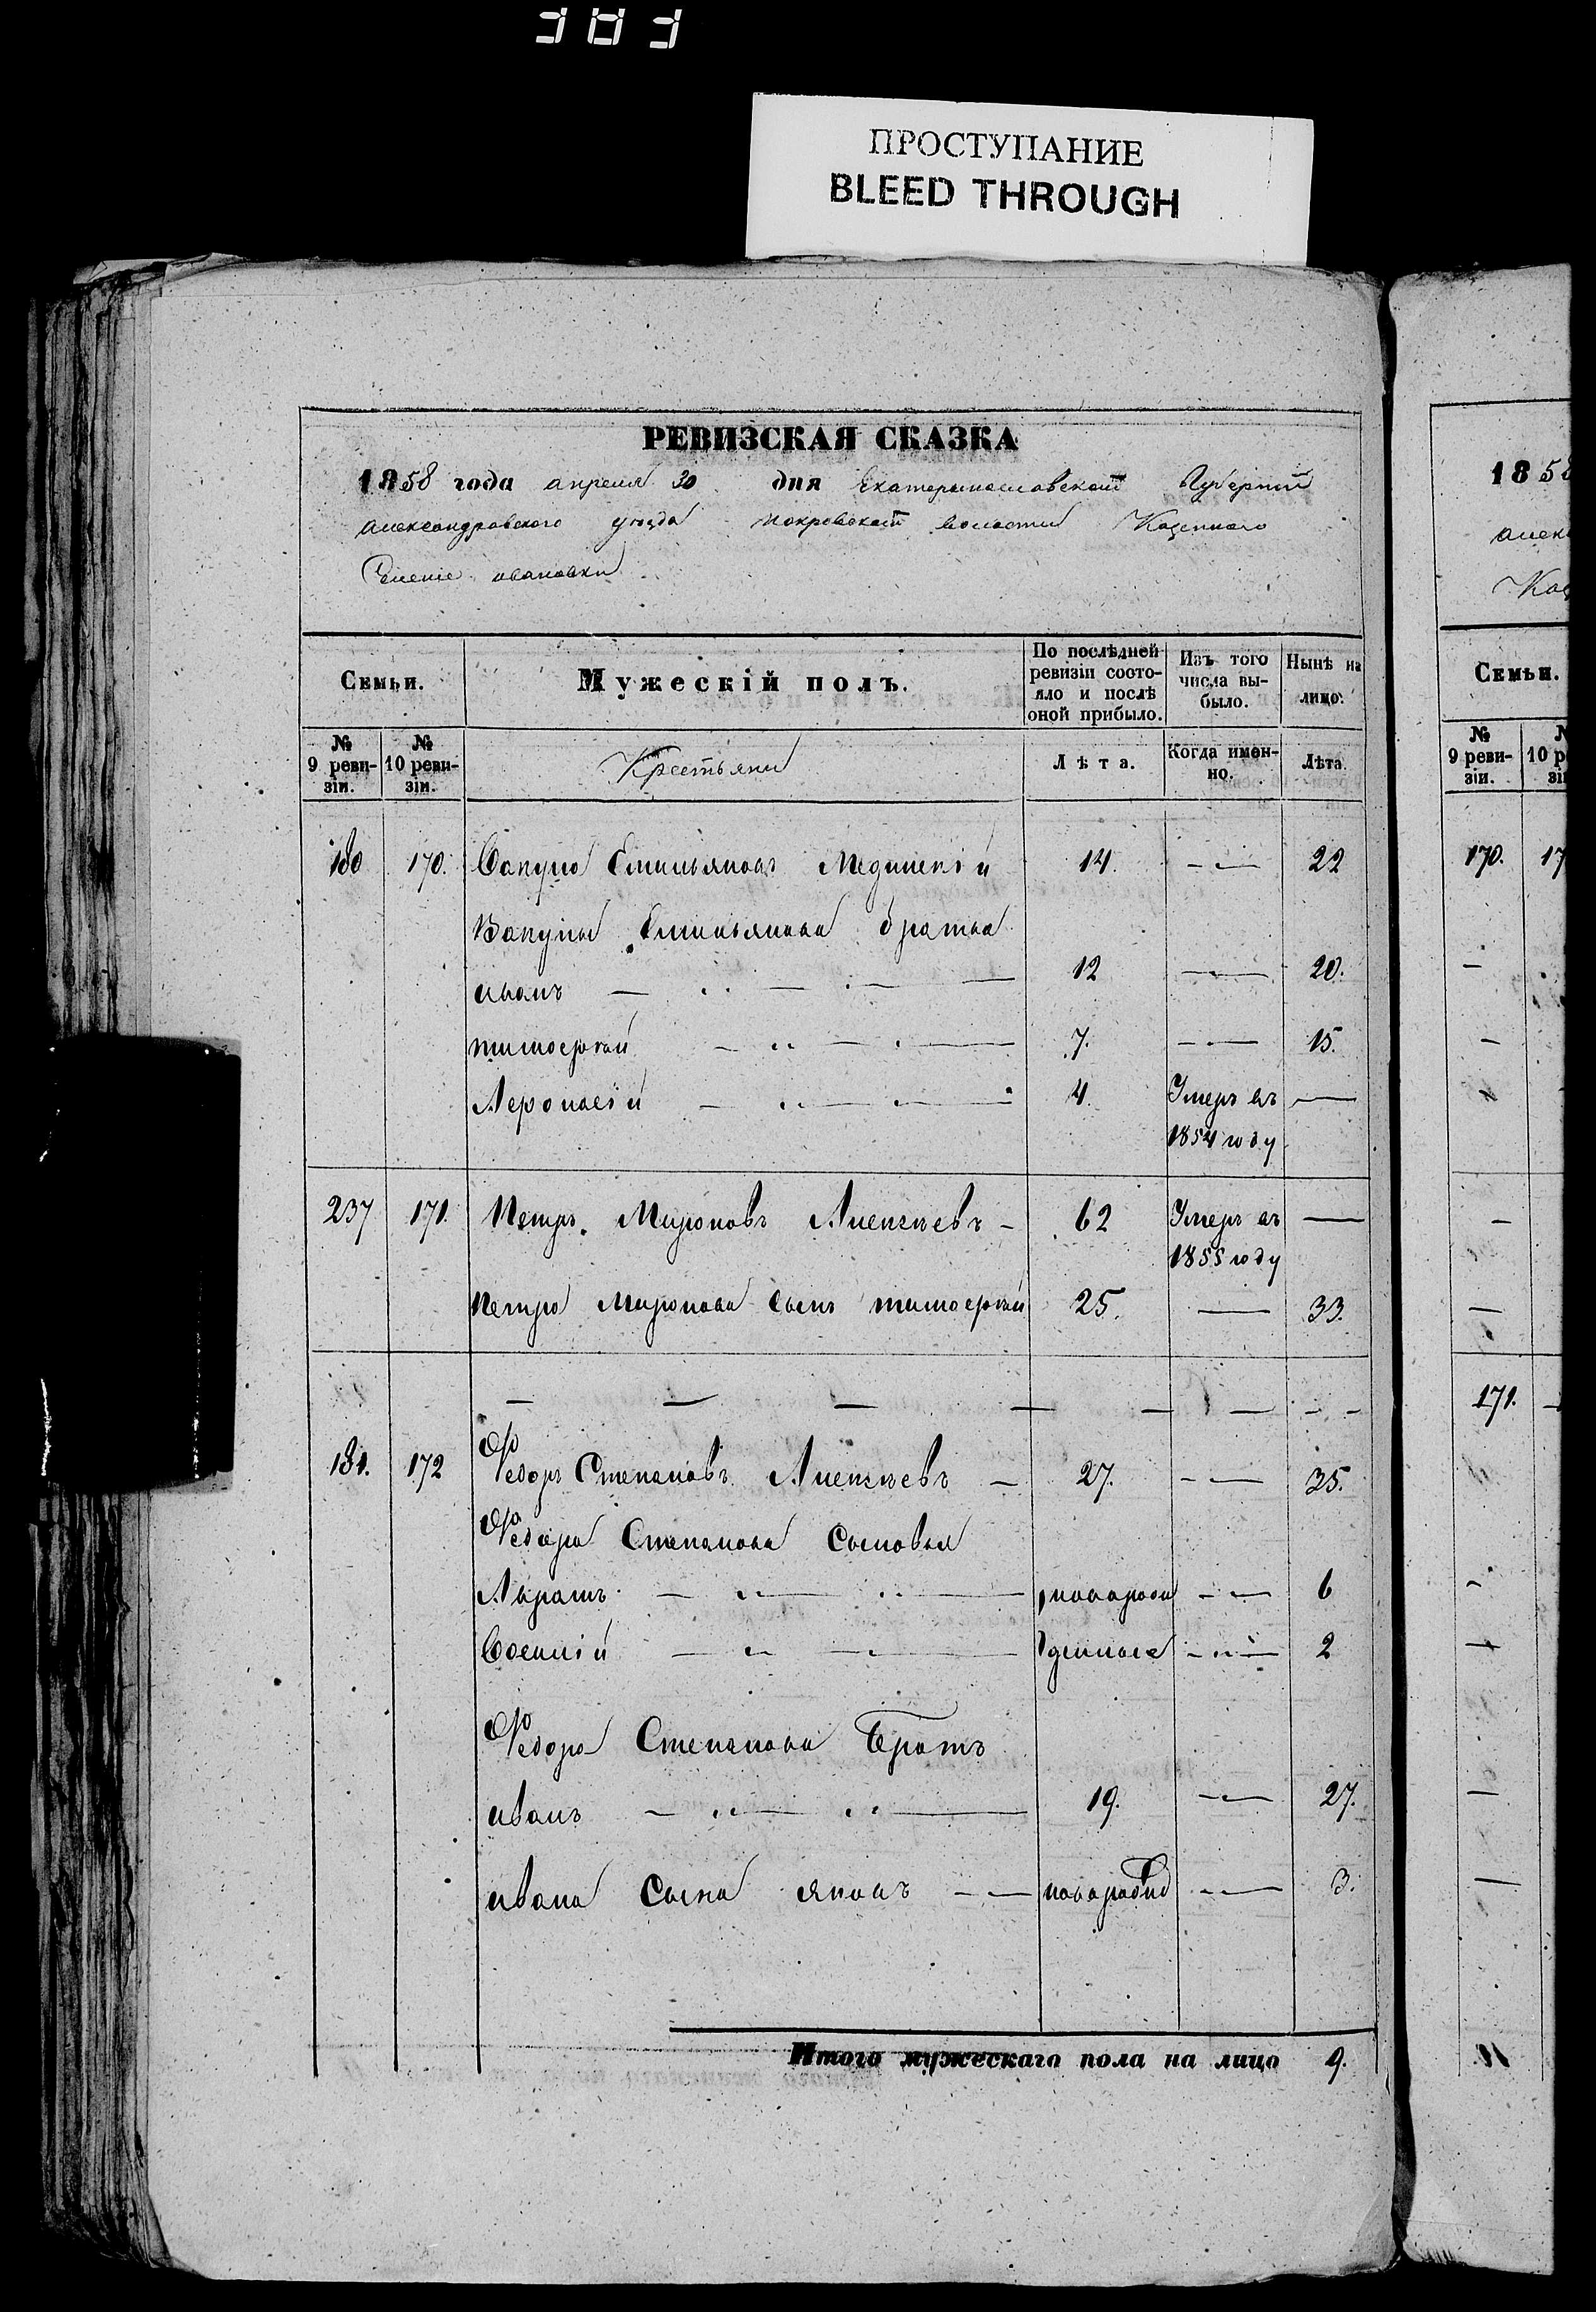 303
ПРОСТУПАНИЕ
BLEED THROUGH
РЕВИЗСКАЯ СКАЗКА
1858 года апреля 30 дня Екатеринославской Губернии
александровского уезда покровской волости Казенного
Селение ивановки
Семьи. Мужескій полъ. По послѣдней ревизіи состояло и послѣ оной прибыло. Изъ того числа выбыло. Нынѣ на лицо.
№ 9 ревизіи. № 10 ревизіи. Крестьяни Лѣта. Когда именно. Лѣта.
180 170. Вакула Емильяновъ 14. 22
Вакулы Емильянова братья
иванъ 12 20.
тимофей 7. 15.
Афонасій 4. Умеръ въ
1854 году
237 171. Петръ Мироновъ Алексѣевъ 62 Умеръ въ
1855 году
Петра Миронова сынъ тимофей 25. 33.
181. 172 Федоръ Степановъ Алексѣевъ 27. 35.
Федора Степанова Сыновья
Абрамъ новорож 6
Евсений дился 2
Федора Степанова Братъ
иванъ 19. 27.
ивана Сынъ яковъ 3.
Итого мужескаго пола на лицо 9.
1858
алек
Каз
Семьи.
№ 9 ревизіи. 10 р
170. 17
171.